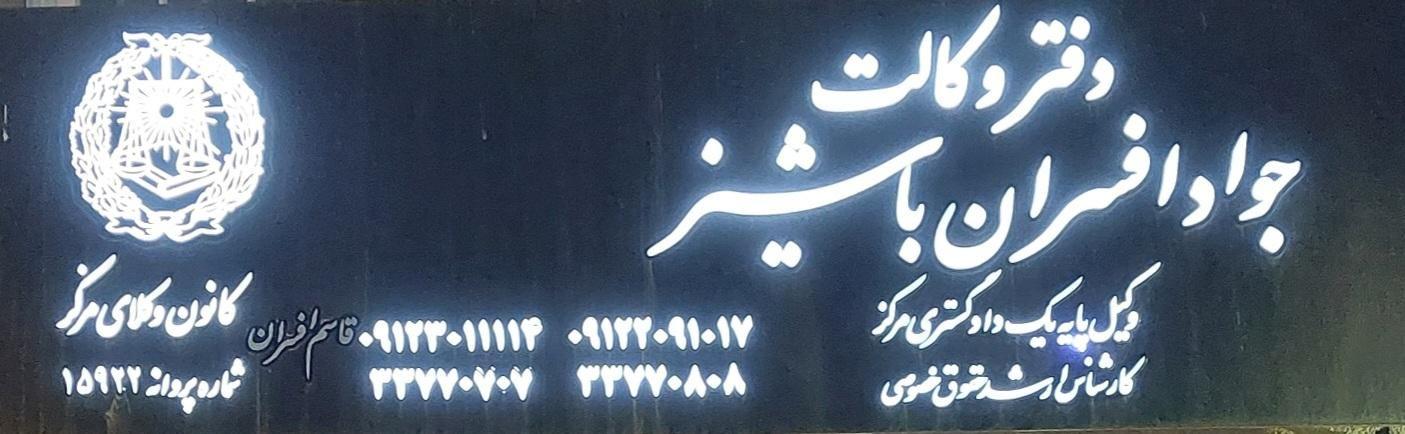 دفتر وکالت
جواد افسران باشیز
وکیل پایه یک دادگستری مرکز
کارشناس ارشد حقوق خصوصی
۰۹۱۲۲۰۹۱۰۱۷
۳۳۷۷۰۸۰۸
۰۹۱۲۳۰۱۱۱۱۴ قاسم افسران
۳۳۷۷۰۷۰۷
کانون وکلای مرکز
شماره پروانه ۱۵۹۲۲